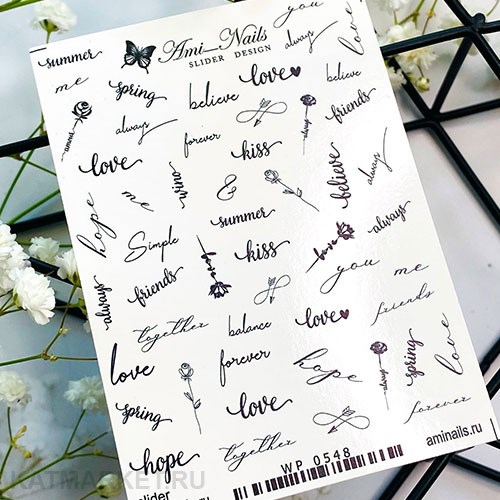 summer
Ami-Nails
SLIDER DESIGN
you
always
love
me
spring
believe
love
believe
always
always
forever
friends
love
kiss
believe
always
amor
&
hope
me
summer
always
Simple
kiss
love
you
me
always
friends
love
together
balance
love
friends
love
forever
hope
always
spring
love
spring
love
forever
hope
together
WP 0548
aminails.ru
slider
KATMARKET.RU